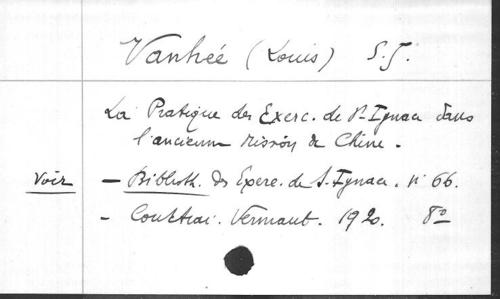 Vanhée (Louis) S.J.
La Pratique des Exerc. de St Ignace dans
l'ancienne Mission de Chine.
Voir — Biblioth. des Exerc. de S. Ignace. n° 66.
- Courtrai. Vermaut. 1920. 8°